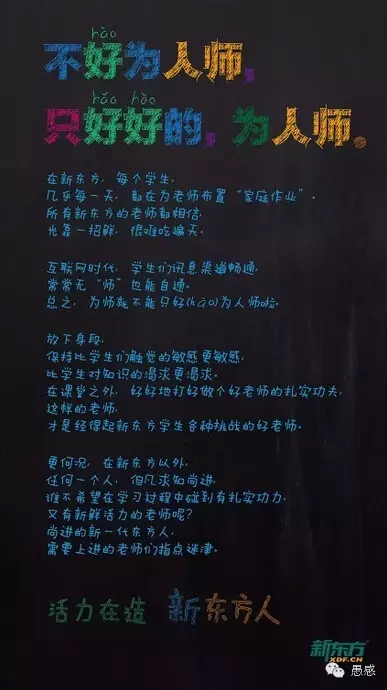 hào
不好为人师，
hǎo hǎo
只好好的，为人师。
在新东方，每个学生，
几乎每一天，都在为老师布置“家庭作业”。
所有新东方的老师都相信，
光靠一招鲜，很难吃遍天。
互联网时代，学生们讯息渠道畅通，
常常无“师”也能自通。
总之，为师就不能只好(hào)为人师啦。
放下身段，
保持比学生们触觉的敏感更敏感，
比学生对知识的渴求更渴求。
在课堂之外，好好地打好做个好老师的扎实功夫，
这样的老师，
才是经得起新东方学生各种挑战的好老师。
更何况，在新东方以外，
任何一个人，但凡求知尚进，
谁不希望在学习过程中碰到有扎实功力，
又有新鲜活力的老师呢？
尚进的新一代东方人，
需要上进的老师们指点迷津。
活力在造 新东方人
新东方
XDF.CN
愚感